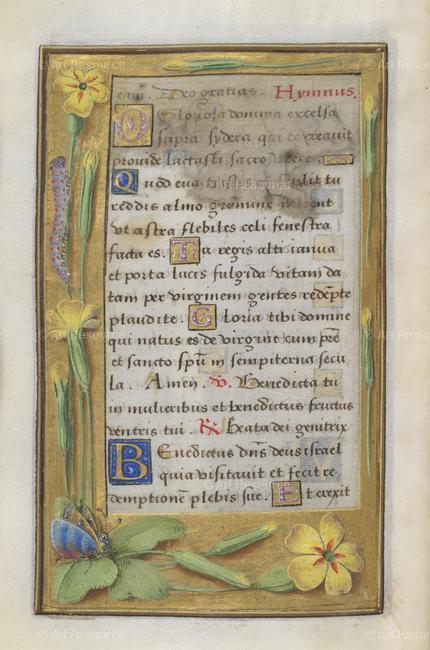 eam. Deo gratias. Hymnus.
O Gloriosa domina excelsa
supra sydera qui te creauit
prouide lactasti sacro
Quod eua tristis abstulit tu
reddis almo germine
vt astra flebiles celi fenestra
facta es. Tu regis alti ianua
et porta lucis fulgida vitam da
tam per virginem gentes redēpte
plaudite. Gloria tibi domine
qui natus es de virgine cum prē
et sancto spū in sempiterna secu
la. Amen. V. Benedicta tu
in mulieribus et benedictus fructus
ventris tui. Rx Beata dei genitrix
BEnedictus dn̄s deus israel
quia visitauit et fecit re
demptionē plebis sue. Et erexit
© Art Resource